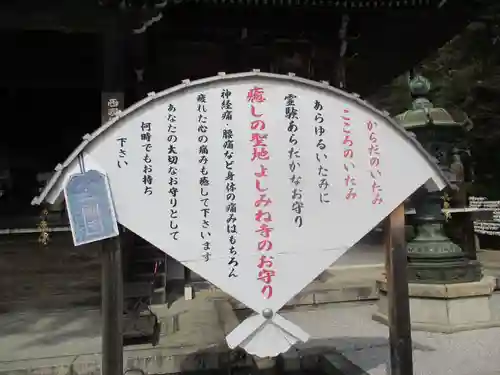 からだのいたみ
こころのいたみ
あらゆるいたみに
霊験あらたかなお守り
癒しの聖地よしみね寺のお守り
神経痛・腰痛など身体の痛みはもちろん
疲れた心の痛みも癒して下さいます
あなたの大切なお守りとして
何時でもお持ち
下さい